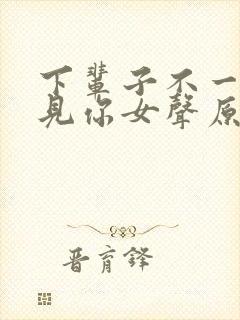 下輩子不一
見你女聲原
晋育鋒